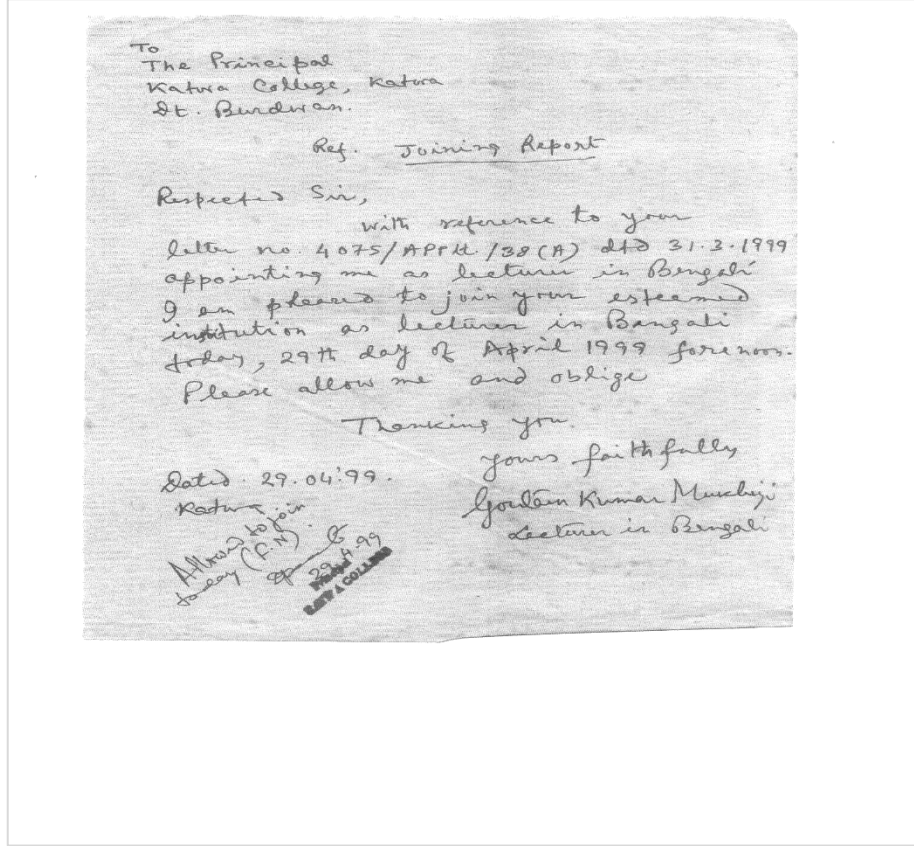 To
The Principal
Katwa College, Katwa
Dt. Burdwan.
Ref. Joining Report
Respected Sir,
With reference to your
letter no. 4075/APPtt./38(A) dtd 31.3.1999
appointing me as lecturer in Bengali
I am pleased to join your esteemed
institution as lecturer in Bengali
today, 29th day of April 1999 forenoon.
Please allow me and oblige
Thanking you.
Yours faithfully
Dated. 29.04.99.
Katwa
Goutam Kumar Mukherji
Lecturer in Bengali
Allowed to join
today (F.N).
29.4.99
Principal
KATWA COLLEGE